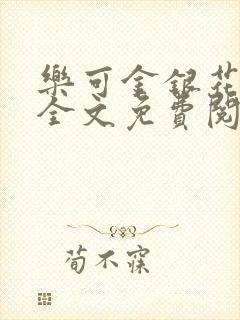 樂可金銀花
全文免費閱
荀不寐